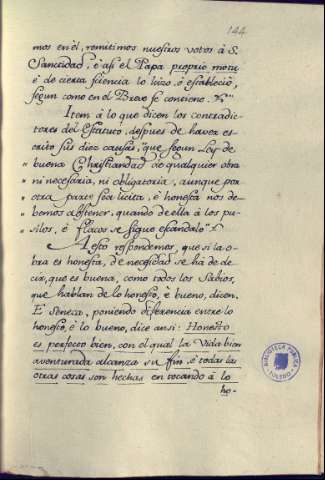 144
mos en èl, remitimos nuestros votos à S.
Santidad, è asi el Papa proprio motu
è de cierta sciencia lo hizo, è estableciò,
segun como en el Breve se contiene.
Item à lo que dicen los contradic-
tores del Estatuto, despues de haver es-
crito sus diez causas, "que segun Ley de
" buena Christiandad de qualquier obra
" ni necesaria, ni obligatoria, aunque por
" otra parte sea licita, è honesta nos de-
" bemos abstener, quando de ella à los pu-
" silos, è flacos se sigue escandalo"
A esto respondemos, que si la o-
bra es honesta, de necesidad se ha de de-
cir, que es buena, como todos los Sabios,
que hablan de lo honesto, è bueno, dicen.
E Seneca, poniendo diferencia entre lo
honesto, è lo bueno, dice ansi: Honesto
es perfecto bien, con el qual la Vida bien
aventurada alcanza su fin, è todas las
otras cosas son hechas en tocando à lo
ho-
BIBLIOTECA PUBLICA
TOLEDO